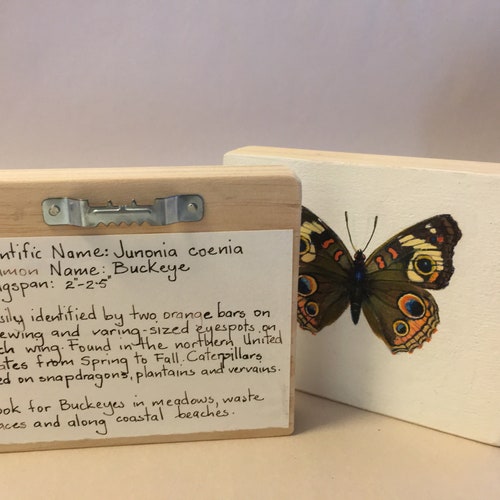 ntific Name: Junonia coenia
mmon Name: Buckeye
gspan: 2"-2.5"
sily identified by two orange bars on
ewing and varing-sized eyespots on
ch wing. Found in the northern United
tes from Spring to Fall. Caterpillars
ed on snapdragons, plantains and vervains.
ook for Buckeyes in meadows, waste
aces and along coastal beaches.